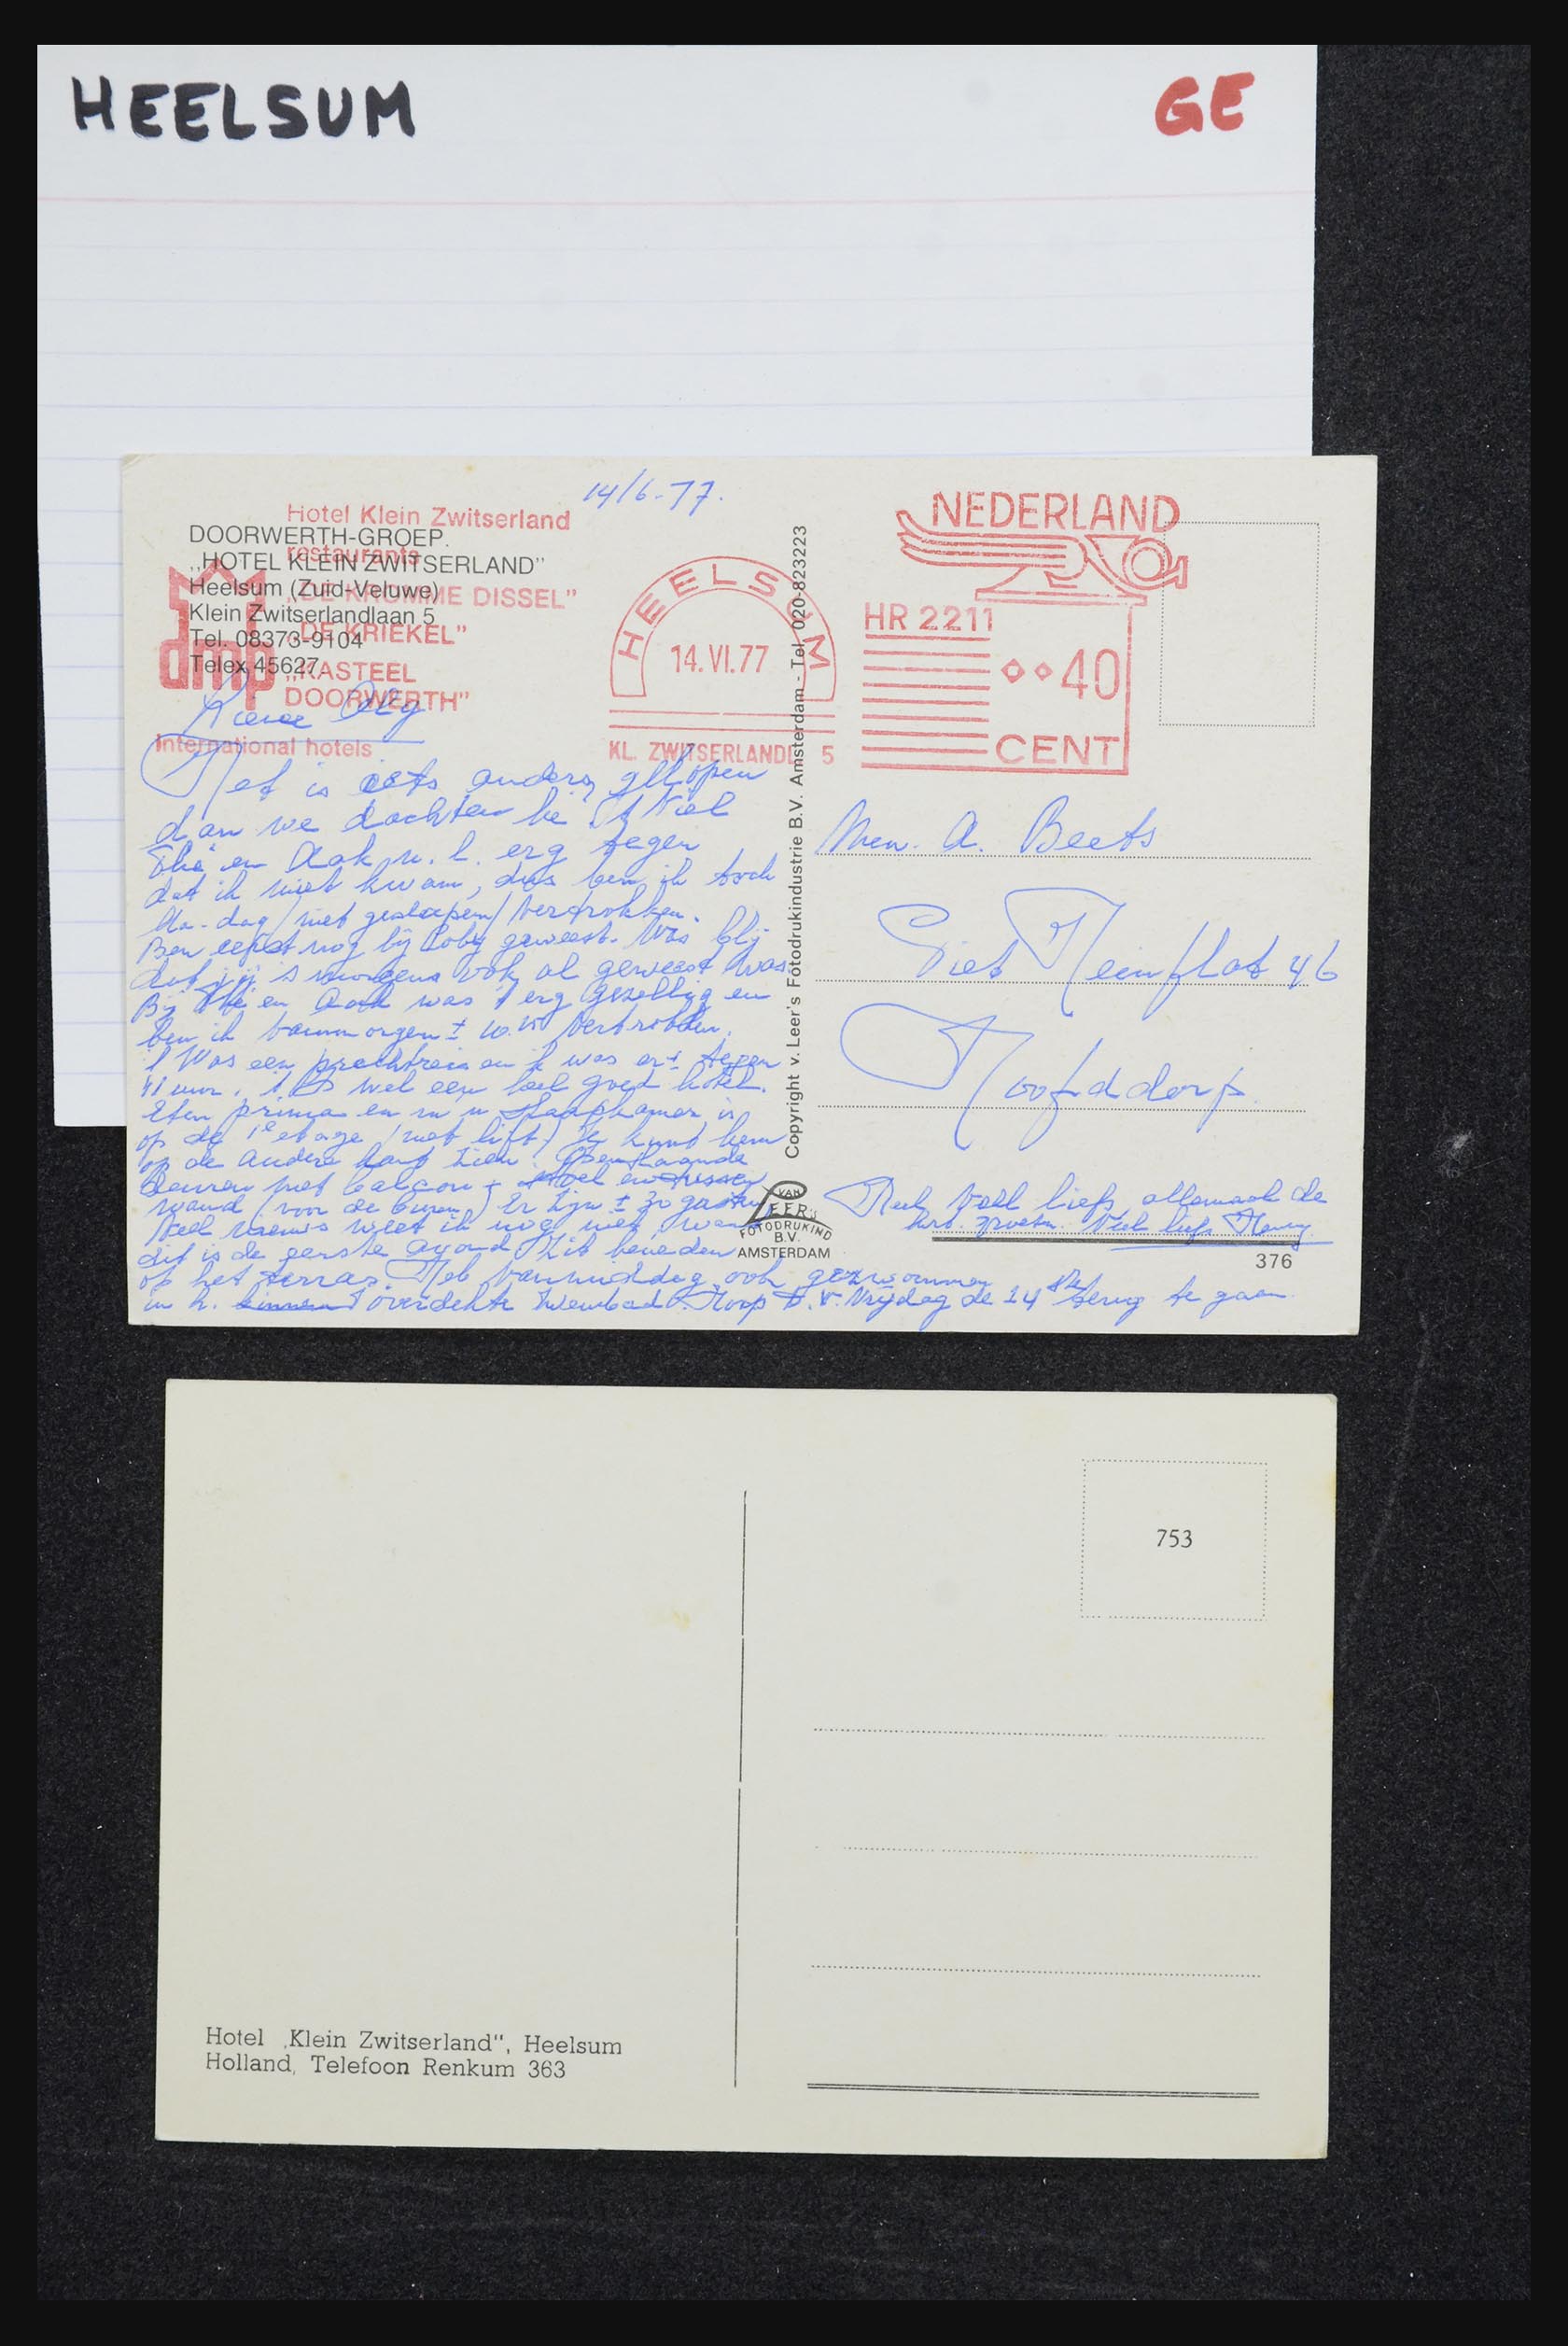 HEELSUM
GE
14/6-77.
Hotel Klein Zwitserland
restaurants
„DE KROMME DISSEL"
„DE KRIEKEL"
„KASTEEL
DOORWERTH"
dmp
International hotels
DOORWERTH-GROEP.
„HOTEL KLEIN ZWITSERLAND"
Heelsum (Zuid-Veluwe)
Klein Zwitserlandlaan 5
Tel. 08373-9104
Telex 45627
HEELSUM
14.VI.77
KL. ZWITSERLANDL 5
NEDERLAND
HR 2211
40
CENT
Lieve
Het is iets anders gelopen
dan we dachten he
en erg tegen
dat ik niet kwam, dus ben ik toch
niet geslapen vertrokken.
Ben eerst nog bij geweest. Was blij
dat jij 's morgens ook al geweest was
Bij en was 't erg gezellig en
ben ik vanmorgen ± vertrokken.
't Was een prachtreis en 'k was er ± tegen
11 uur. 't Is wel een heel goed hotel.
Eten prima en m'n slaapkamer is
op de 1e etage (met lift) Je kunt hem
op de andere kant zien. Openslaande
deuren met balcon +
wand (voor de buren) Er zijn ± 30 gasten
Veel nieuws weet ik nog niet, want
dit is de eerste avond. Zit beneden
op het terras. Heb vanmiddag ook gezwommen
in h. overdekte zwembad. Hoop D.V. Vrijdag de 24ste terug te gaan.
Copyright v. Leer's Fotodrukindustrie B.V. Amsterdam - Tel. 020-823223
Mevr. A. Beets
Piet Heinflat 46
Hoofddorp.
Heel veel liefs allemaal de
Veel liefs Henny
VAN
LEER'S
FOTODRUKIND
B.V.
AMSTERDAM
376
753
Hotel „Klein Zwitserland", Heelsum
Holland, Telefoon Renkum 363